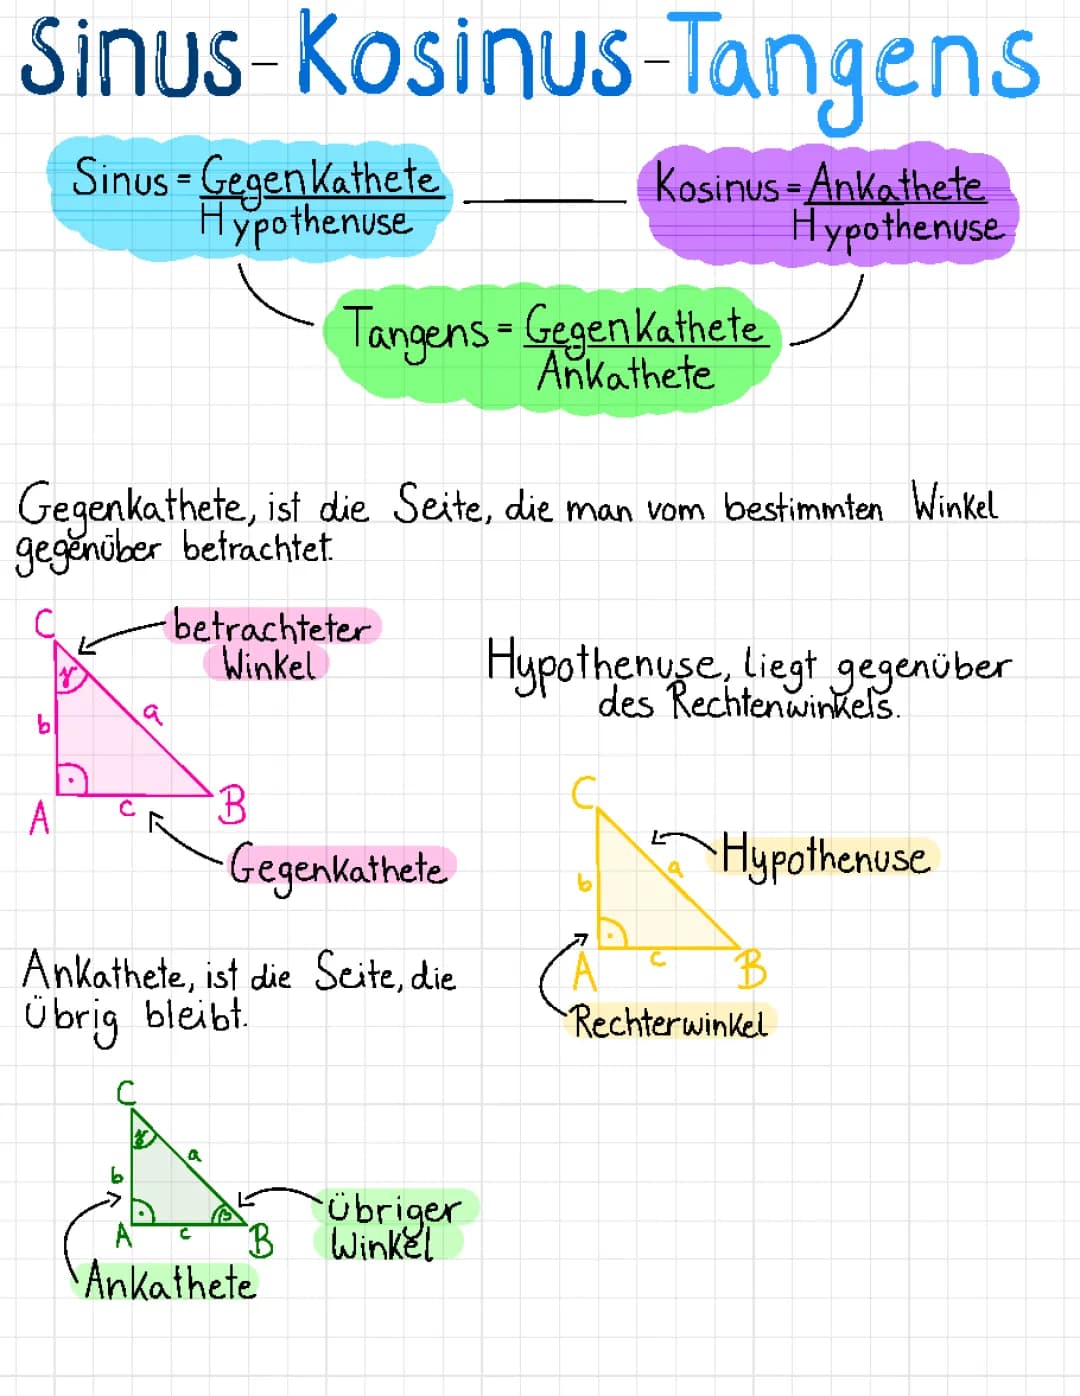 Sinus-Kosinus-Tangens
Sinus = Gegenkathete
Hypothenuse
Kosinus = Ankathete
Hypothenuse
Tangens = Gegenkathete
Ankathete
Gegenkathete, ist die Seite, die man vom bestimmten Winkel
gegenüber betrachtet.
C
betrachteter
Winkel
γ
b
a
A
c
B
Gegenkathete
Hypothenuse, liegt gegenüber
des Rechtenwinkels.
C
Hypothenuse
b
a
A
c
B
Rechterwinkel
Ankathete, ist die Seite, die
übrig bleibt.
C
γ
a
b
β
A
c
B
übriger
Winkel
Ankathete